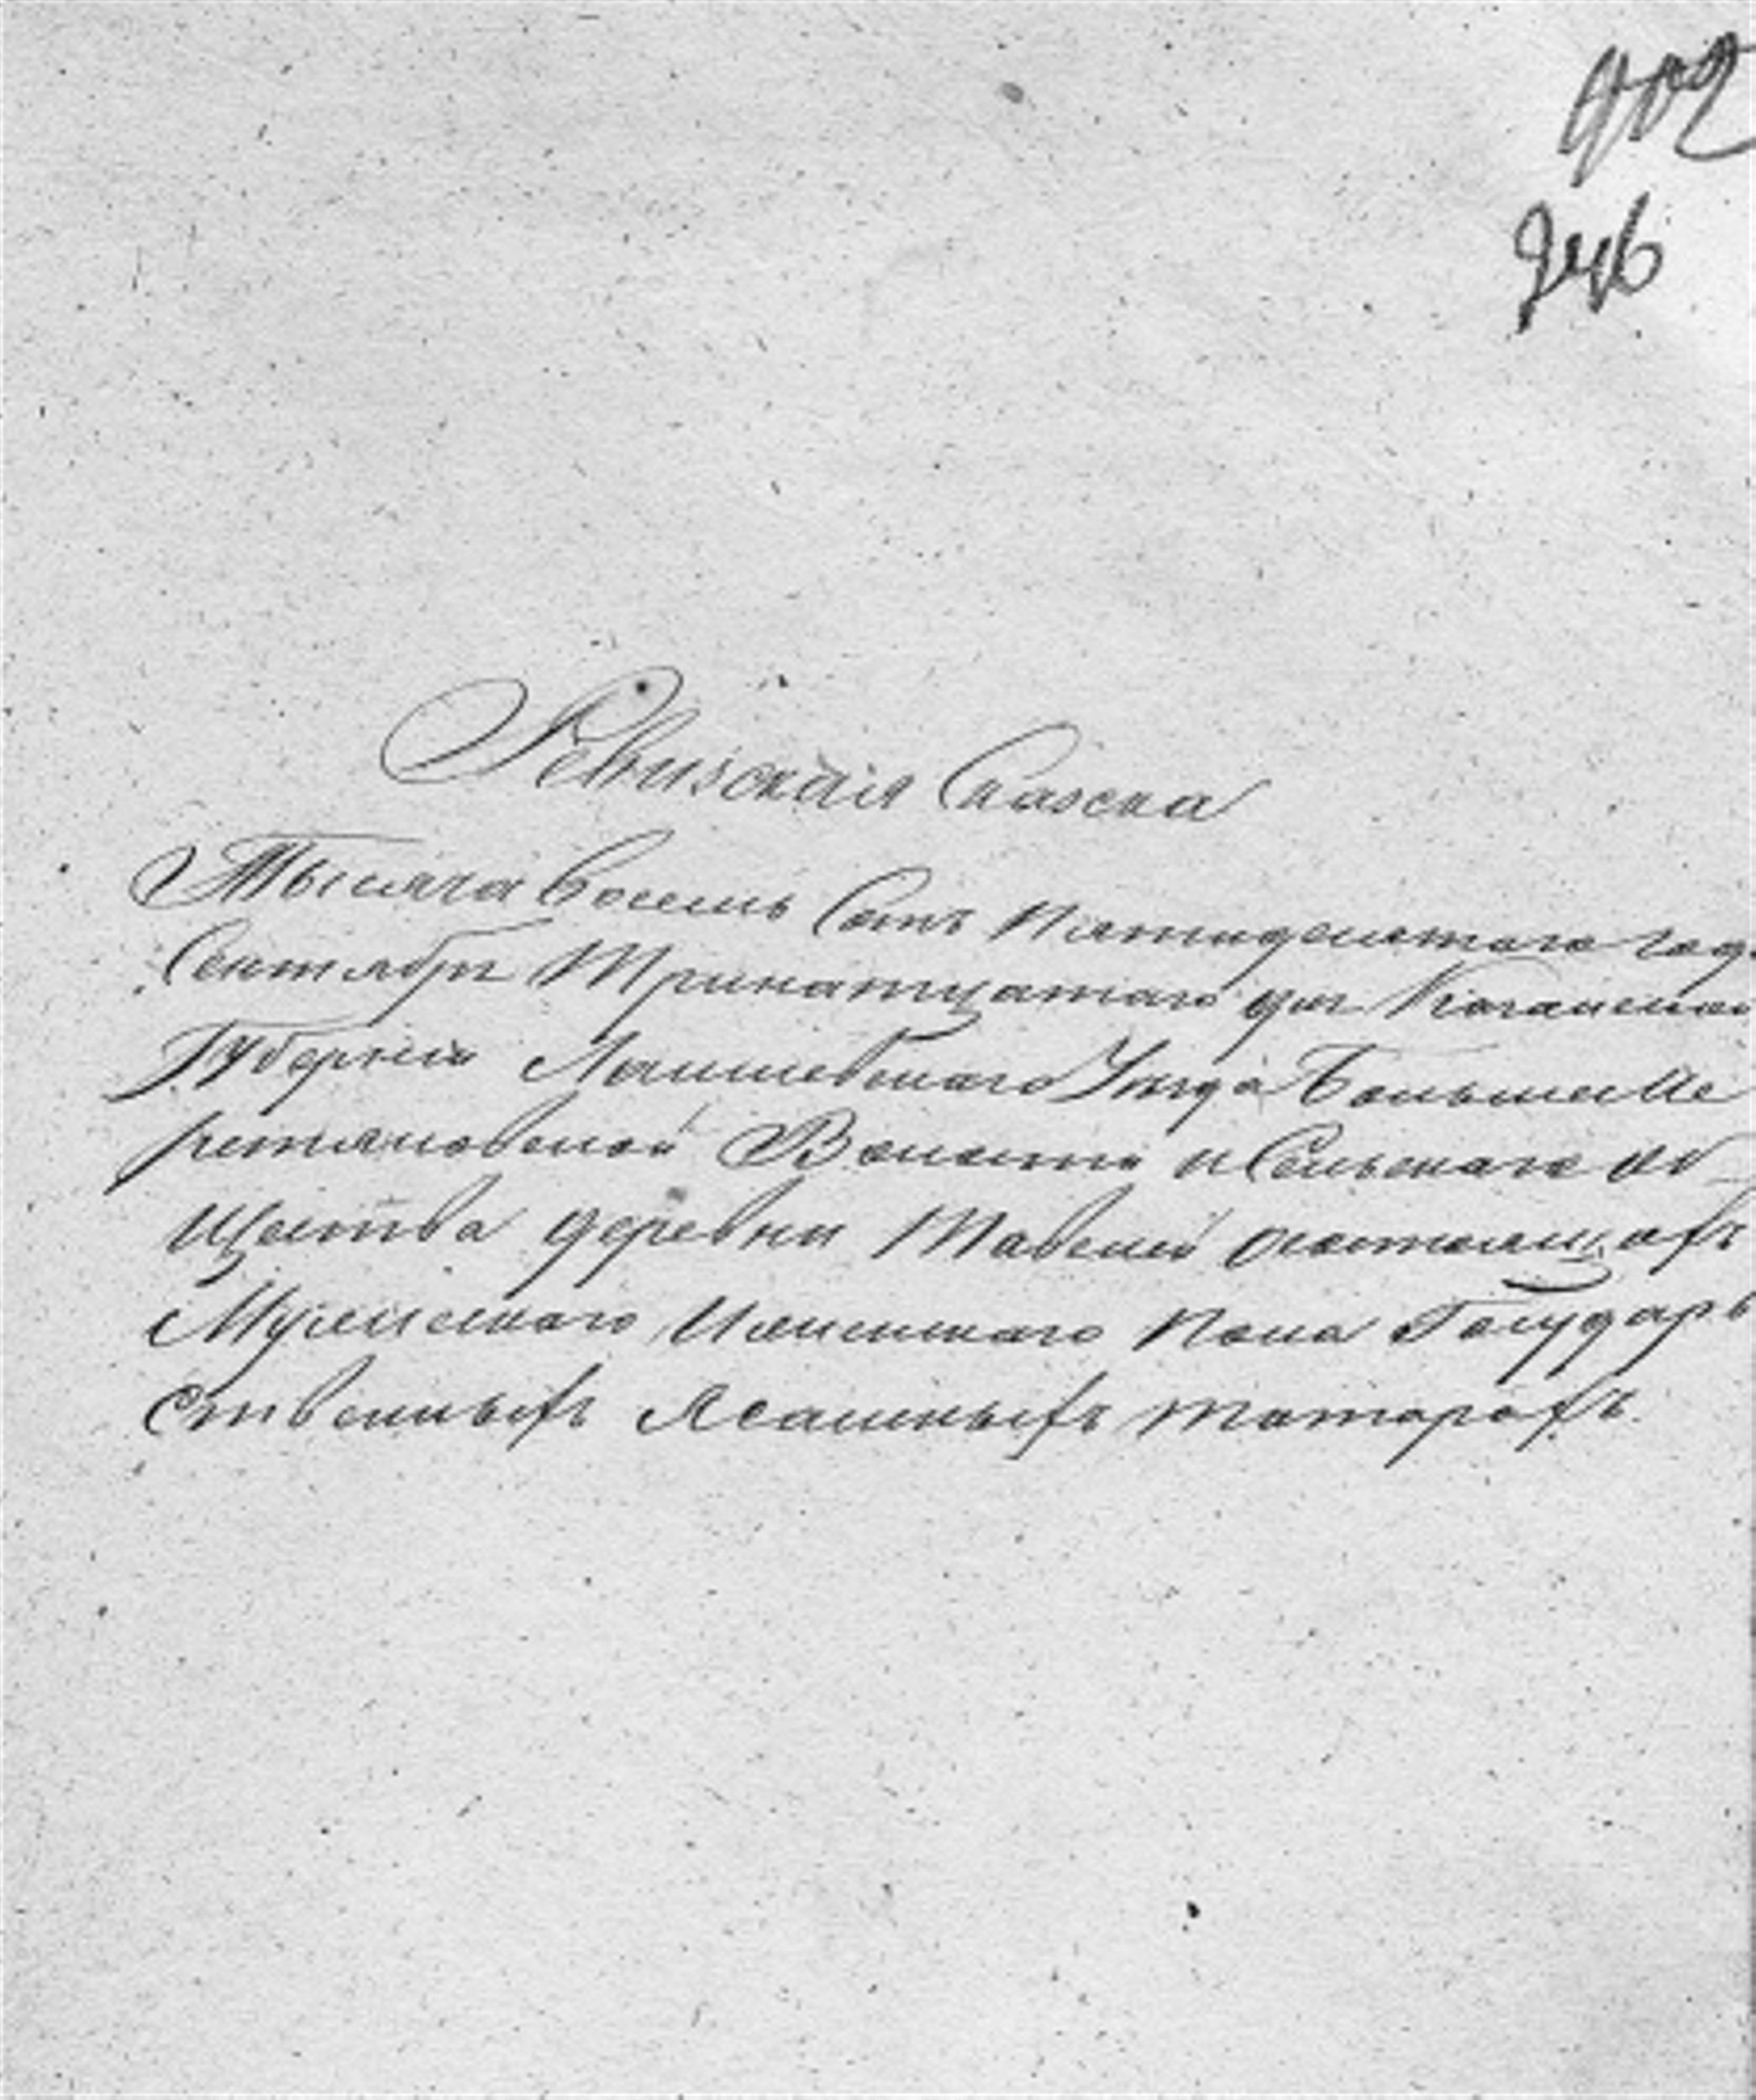 902
946
Ревизская Сказска
Тысяча восемь Сотъ Пятидесятого год
Сентября Тринатцатаго дня Казанской
Губернии Лаишевскаго Уезда Большеме
ретяковской Волости и Сельскаго об
щества деревни Тавелей состоящаѣ
Мужескаго и женскаго пола Государь
ственныхъ Ясашныхъ татарахъ.